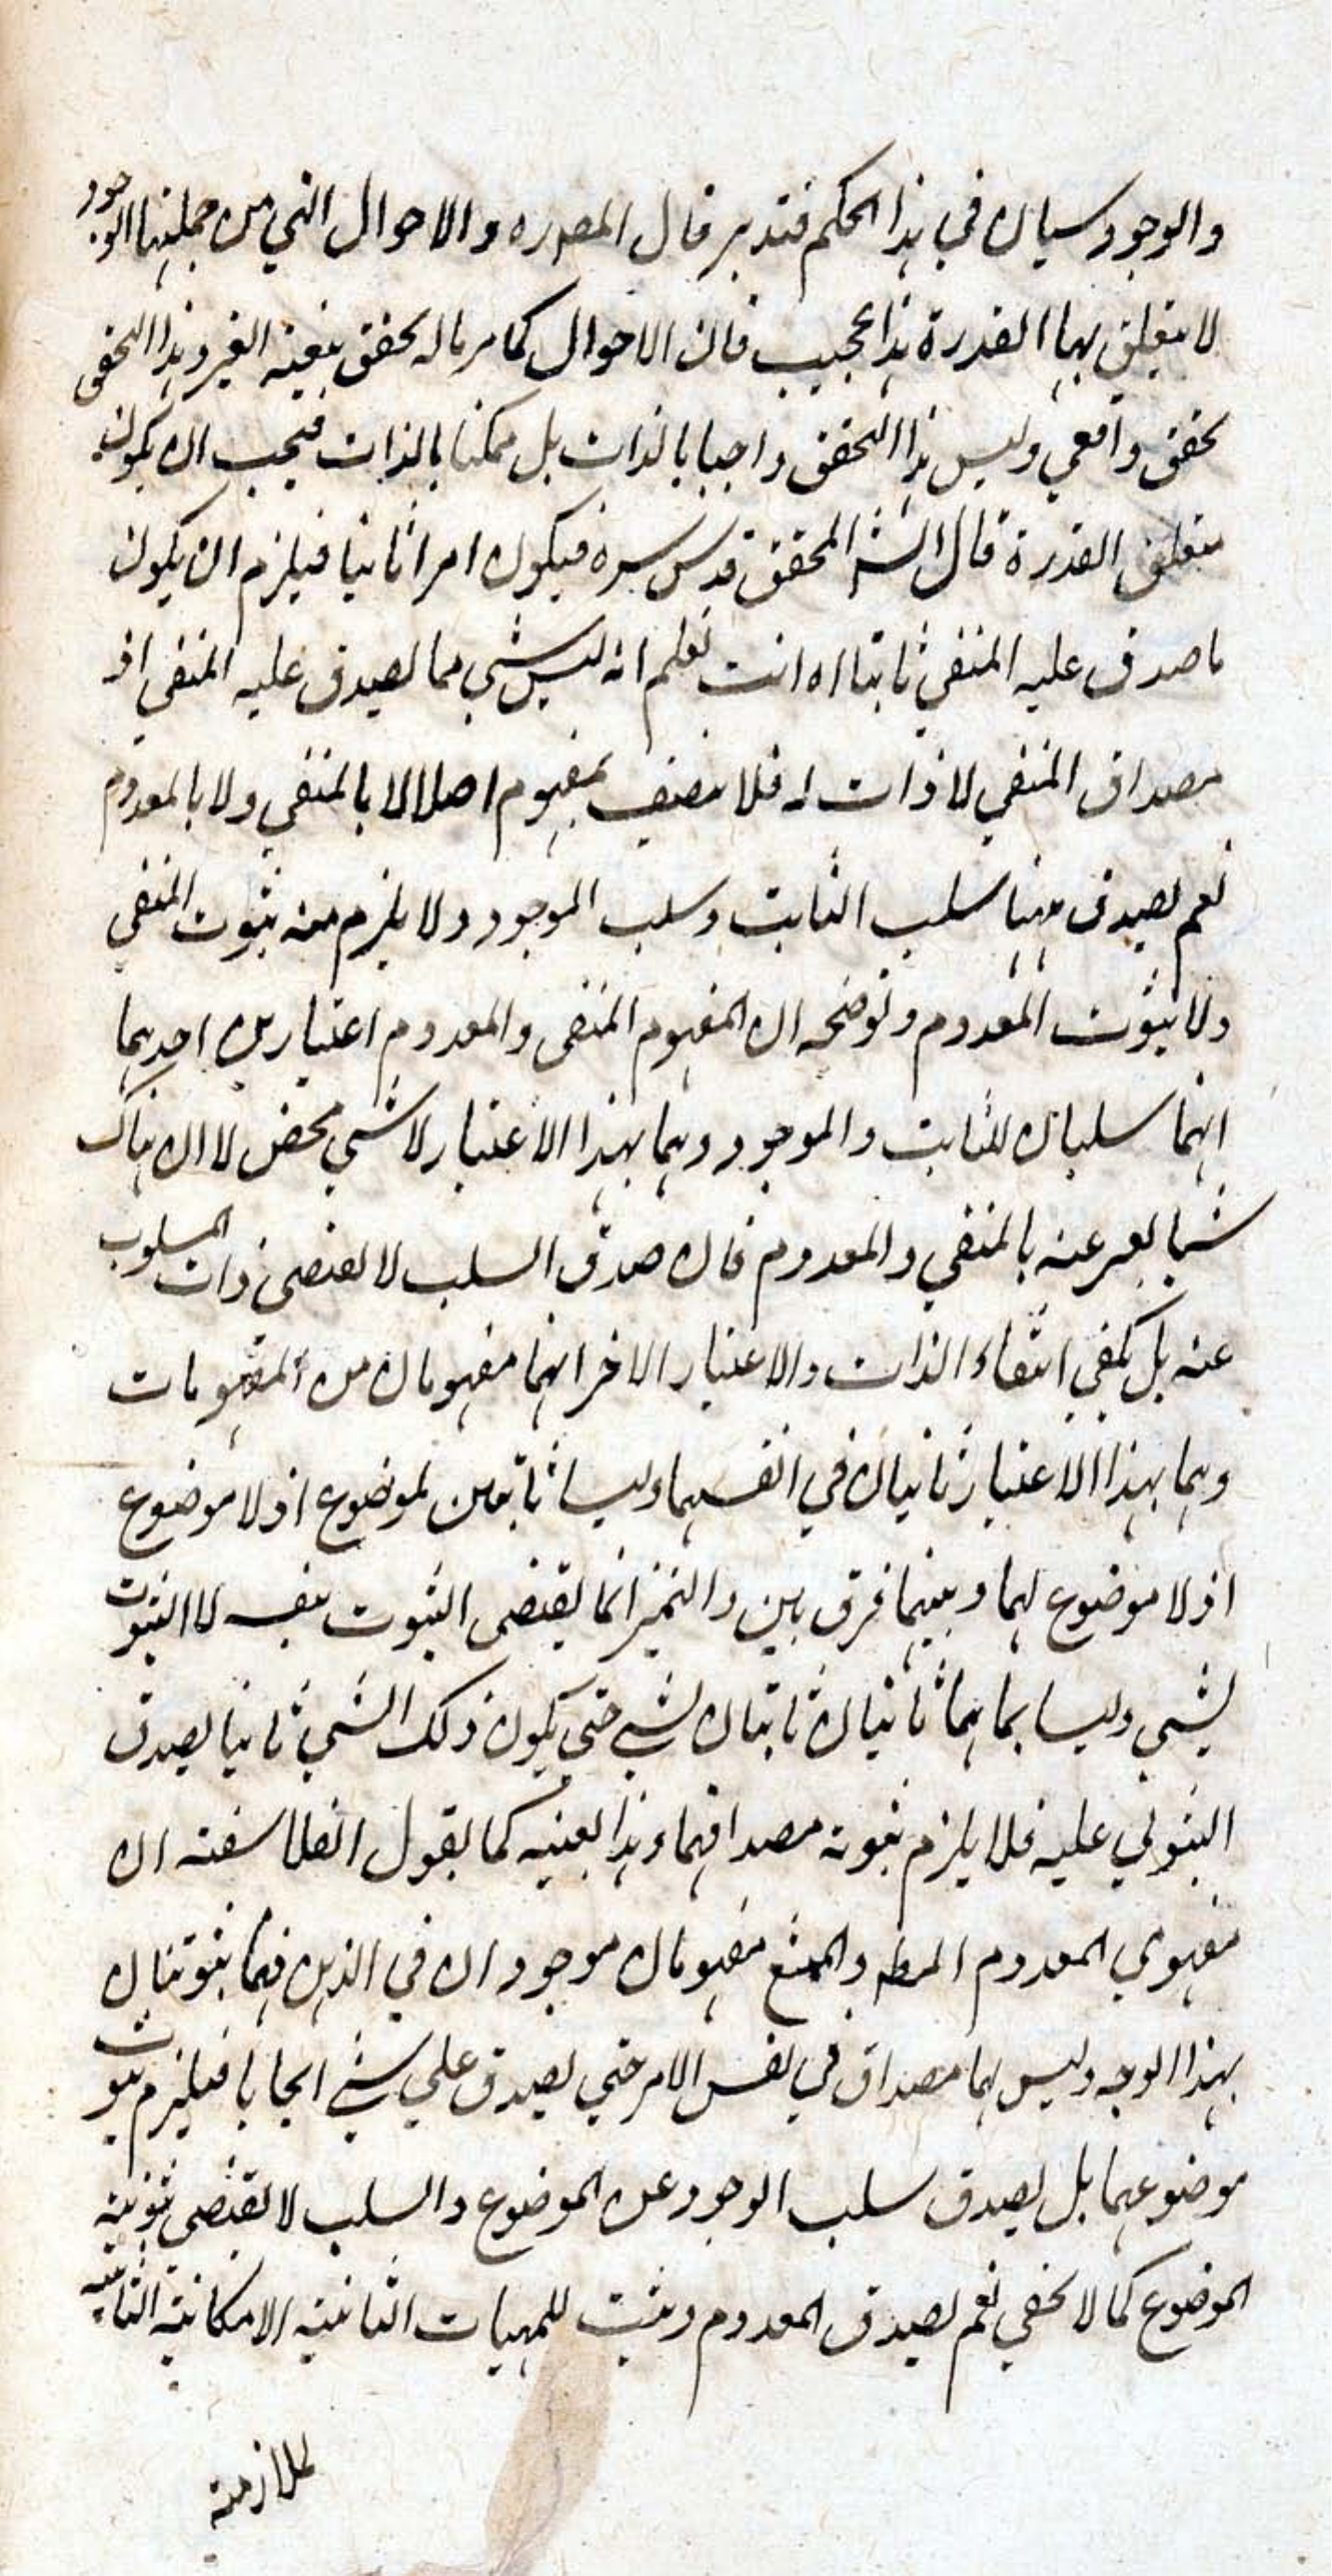 والوجود سيان في هذا الحكم فتدبر قال المصه ره والاحوال التي من جملتها الوجود
لا يتعلق بها القدرة هذا عجيب فان الاحوال كما مر ماله تحقق بتبعية الغير وهذا التحقق
تحقق واقعي وليس هذا التحقق واجبا بالذات بل ممكنا بالذات فيجب ان يكون
متعلق القدرة قال الشر المحقق قدس سره فيكون امرا ثابتا فيلزم ان يكون
ما صدق عليه المنفي ثابتا اه انت تعلم انه ليس شي مما يصدق عليه المنفي اذ
مصداق المنفي لا ذات له فلا يتصف بمفهوم اصلا لا بالمنفي ولا بالمعدوم
نعم يصدق ههنا سلب الثابت وسلب الموجود ولا يلزم منه ثبوت المنفي
ولا ثبوت المعدوم وتوضيحه ان لمفهوم المنفى والمعدوم اعتبارين احدهما
انهما سلبان للثابت والموجود وهما بهذا الاعتبار لا شي محض لا ان هناك
شيا يعبر عنه بالمنفي والمعدوم فان صدق السلب لا يقتضى ذات المسلوب
عنه بل يكفي انتفاء الذات والاعتبار الاخر انهما مفهومان من المفهومات
وهما بهذا الاعتبار ثابتان في انفسهما وليسا ثابتين لموضوع اذ لا موضوع
اذ لا موضوع لهما وبينهما فرق بين والتميز انما يقتضى الثبوت بنفسه لا الثبوت
لشي وليسا بما هما ثابتان ثابتان لشي حتى يكون ذلك الشي ثابتا يصدق
الثبوتي عليه فلا يلزم ثبوت مصداقهما وهذا بعينه كما يقول الفلاسفة ان
مفهومي المعدوم المطه والممتنع مفهومان موجودان في الذهن فهما ثبوتيان
بهذا الوجه وليس لهما مصداق في نفس الامر حتى يصدق على شي ايجابا فيلزم ثبوت
موضوعهما بل يصدق سلب الوجود عن الموضوع والسلب لا يقتضى ثبوتية
الموضوع كما لا يخفي نعم يصدق المعدوم ويثبت للمهيات الثابتة الامكانية الثابتة